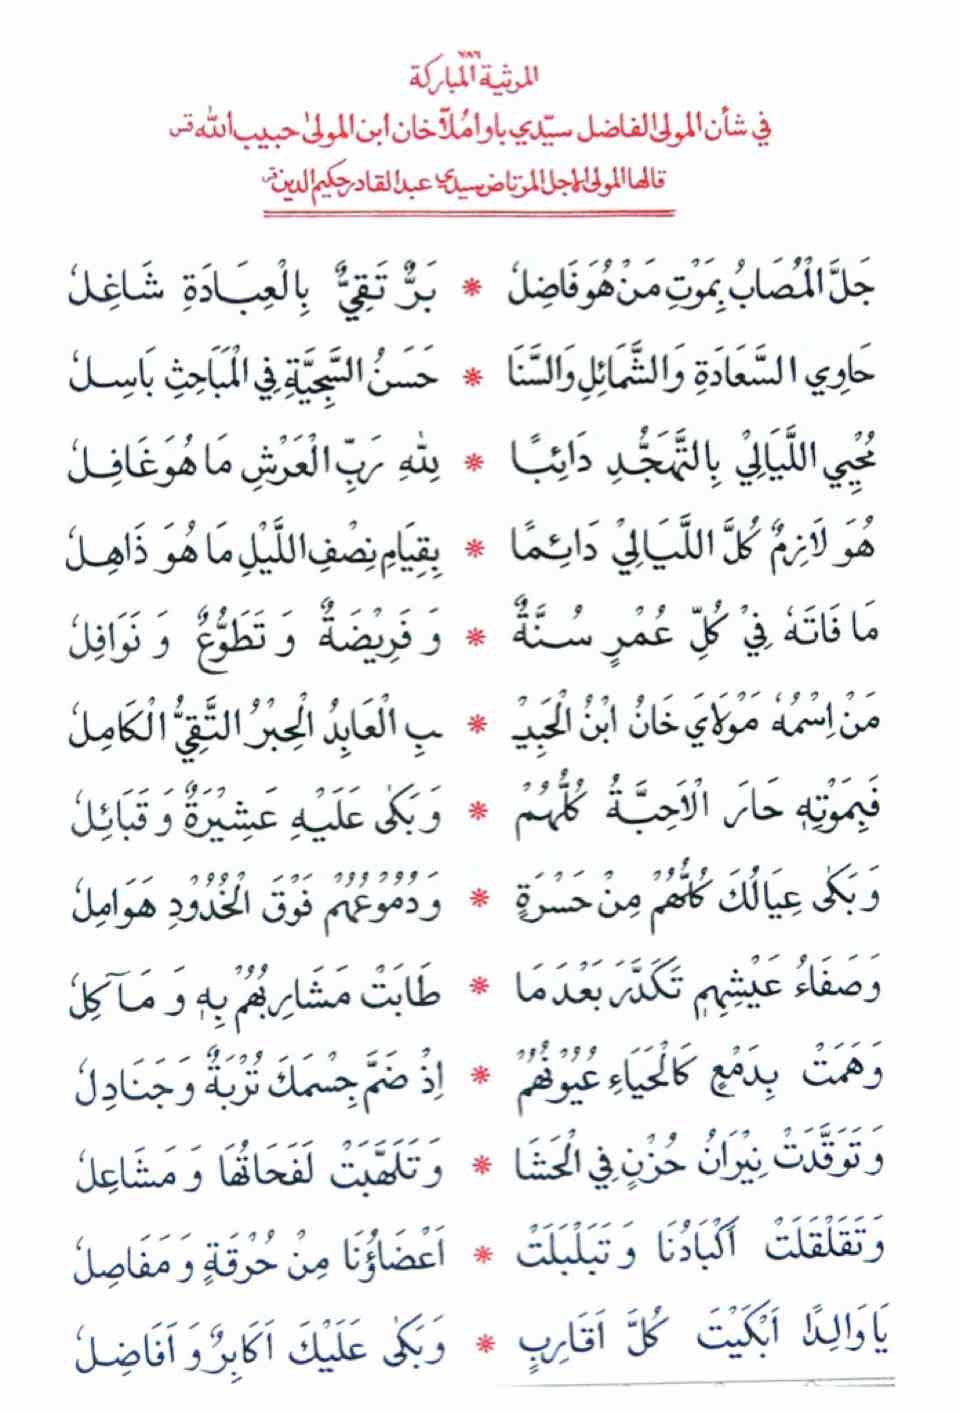 ٧٨٦
المرثية المباركة
في شأن المولى الفاضل سيّدي باوا مُلّا خان ابن المولىٰ حبيب الله قس
قالها المولى الاجل المرتاض سيدي عبد القادر حكيم الدين قس
جَلَّ الْمُصَابُ بِمَوْتِ مَنْ هُوَ فَاضِلُ * بَرٌّ تَقِيٌّ بِالْعِبَادَةِ شَاغِلُ
حَاوِي السَّعَادَةِ وَالشَّمَائِلِ وَالسَّنَا * حَسَنُ السَّجِيَّةِ فِي الْمَبَاحِثِ بَاسِلُ
مُحْيِي اللَّيَالِيْ بِالتَّهَجُّدِ دَائِبًا * لِلّٰهِ رَبِّ الْعَرْشِ مَا هُوَ غَافِلُ
هُوَ لَازِمٌ كُلَّ اللَّيَالِيْ دَائِمًا * بِقِيَامِ نِصْفِ اللَّيْلِ مَا هُوَ ذَاهِلُ
مَا فَاتَهٗ فِيْ كُلِّ عُمْرٍ سُنَّةٌ * وَ فَرِيْضَةٌ وَ تَطَوُّعٌ وَ نَوَافِلُ
مَنْ اِسْمُهٗ مَوْلَايَ خَانُ ابْنُ الْحَبِيْـ * ـبِ الْعَابِدُ الْحِبْرُ التَّقِيُّ الْكَامِلُ
فَبِمَوْتِهٖ حَارَ الْاَحِبَّةُ كُلُّهُمْ * وَ بَكٰى عَلَيْهِ عَشِيْرَةٌ وَ قَبَائِلُ
وَ بَكٰى عِيَالُكَ كُلُّهُمْ مِنْ حَسْرَةٍ * وَ دُمُوْعُهُمْ فَوْقَ الْخُدُوْدِ هَوَامِلُ
وَ صَفَاءُ عَيْشِهِمِ تَكَدَّرَ بَعْدَ مَا * طَابَتْ مَشَارِبُهُمْ بِهٖ وَ مَآكِلُ
وَ هَمَتْ بِدَمْعٍ كَالْحَيَاءِ عُيُوْنُهُمْ * اِذْ ضَمَّ جِسْمَكَ تُرْبَةٌ وَ جَنَادِلُ
وَ تَوَقَّدَتْ نِيْرَانُ حُزْنٍ فِي الْحَشَا * وَ تَلَهَّبَتْ لَفَحَاتُهَا وَ مَشَاعِلُ
وَ تَقَلْقَلَتْ أَكْبَادُنَا وَ تَبَلْبَلَتْ * اَعْضَاؤُنَا مِنْ حُرْقَةٍ وَ مَفَاصِلُ
يَا وَالِدًا اَبْكَيْتَ كُلَّ اَقَارِبٍ * وَ بَكٰى عَلَيْكَ اَكَابِرٌ وَ اَفَاضِلُ